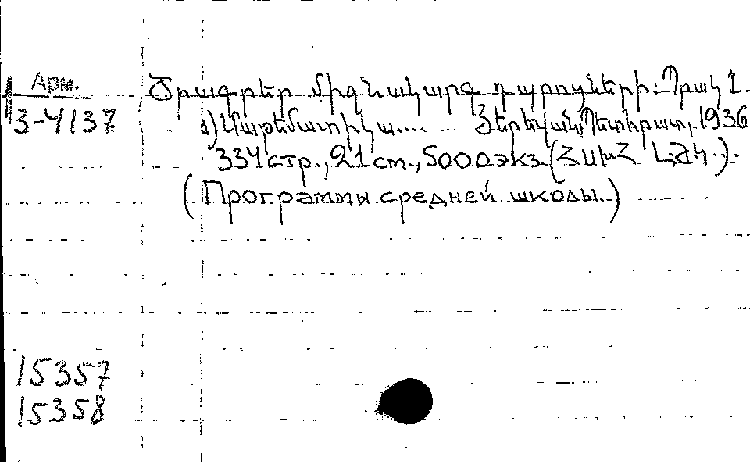 Арм.
3-4137
Ծրագրեր միջնակարգ դպրոցների: Պրակ 1.
ա) Մաթեմատիկա.... Յերևան, Պետհրատ, 1936
334 стр., 21 cm., 5000 экз. (ՀՍԽՀ ԼԺԿ.).
(Программы средней школы.)
15357
15358